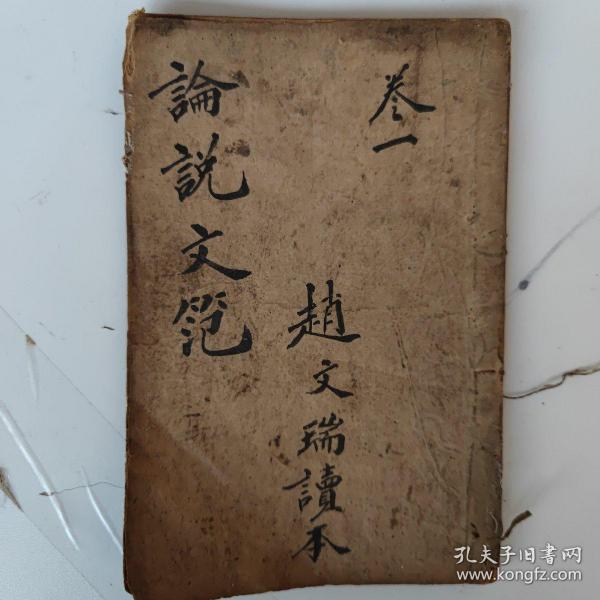 卷一
趙文瑞讀本
論説文範
孔夫子旧书网
www.kongfz.com